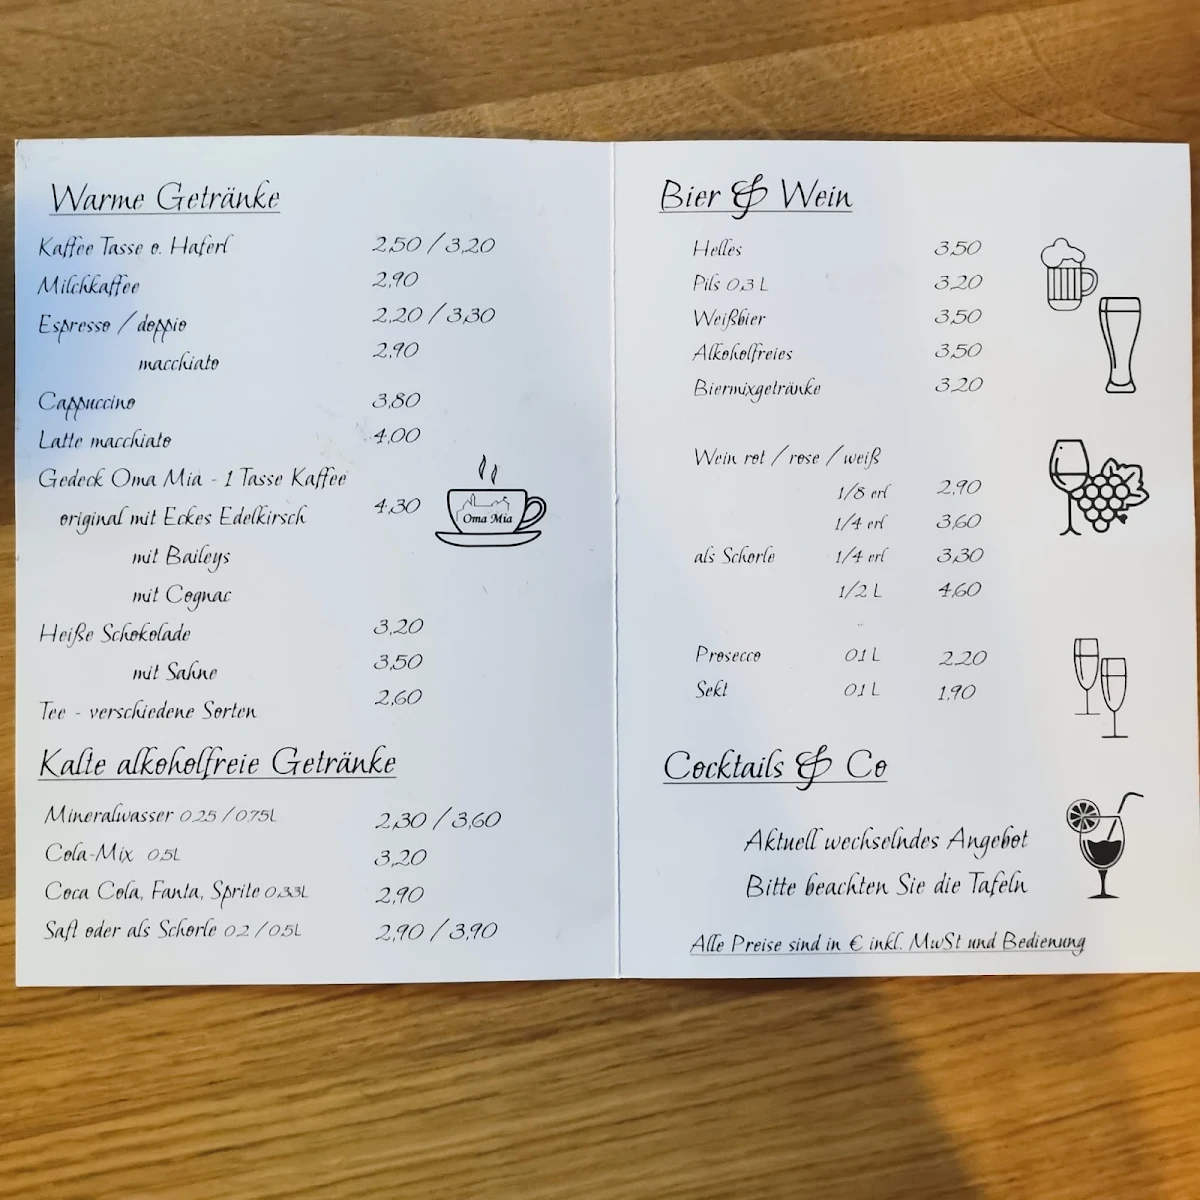 Warme Getränke
Kaffee Tasse o. Haferl 2,50 / 3,20
Milchkaffee 2,90
Espresso / doppio 2,20 / 3,30
macchiato 2,90
Cappuccino 3,80
Latte macchiato 4,00
Gedeck Oma Mia - 1 Tasse Kaffee
original mit Eckes Edelkirsch 4,30
mit Baileys
mit Cognac
Heiße Schokolade 3,20
mit Sahne 3,50
Tee - verschiedene Sorten 2,60
Oma Mia
Kalte alkoholfreie Getränke
Mineralwasser 0,25 / 0,75L 2,30 / 3,60
Cola-Mix 0,5L 3,20
Coca Cola, Fanta, Sprite 0,33L 2,90
Saft oder als Schorle 0,2 / 0,5L 2,90 / 3,90
Bier & Wein
Helles 3,50
Pils 0,3 L 3,20
Weißbier 3,50
Alkoholfreies 3,50
Biermixgetränke 3,20
Wein rot / rose / weiß
1/8 erl 2,90
1/4 erl 3,60
als Schorle 1/4 erl 3,30
1/2 L 4,60
Prosecco 0,1 L 2,20
Sekt 0,1 L 1,90
Cocktails & Co
Aktuell wechselndes Angebot
Bitte beachten Sie die Tafeln
Alle Preise sind in € inkl. MwSt und Bedienung